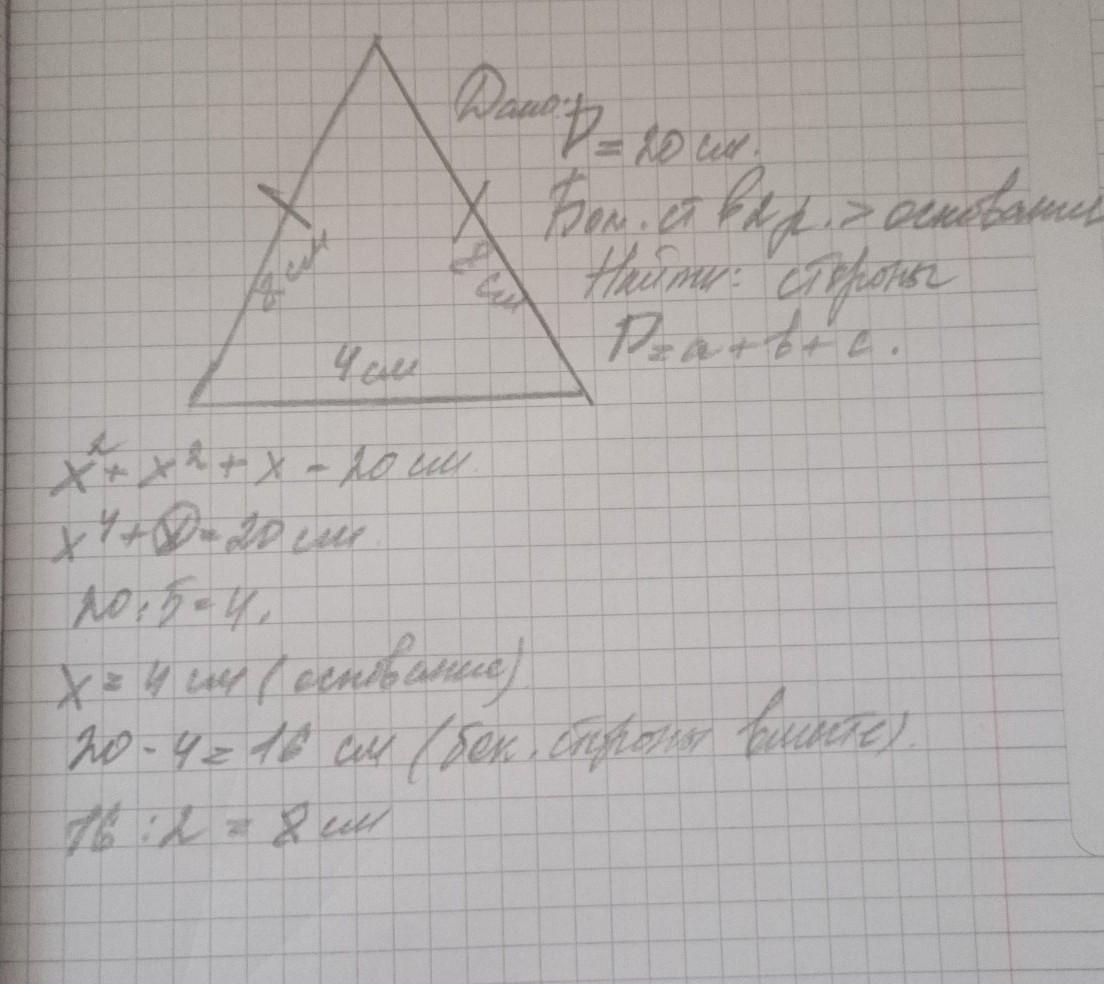 Дано:
P = 20 см.
Бок. ст в 2 р. > основания
Найти: стороны
P = a + b + c.
8 см
8 см
4 см
x² + x² + x - 20 см
x⁴ + x = 20 см
20 : 5 = 4.
x = 4 см (основание)
20 - 4 = 16 см (бок. стороны вместе).
16 : 2 = 8 см